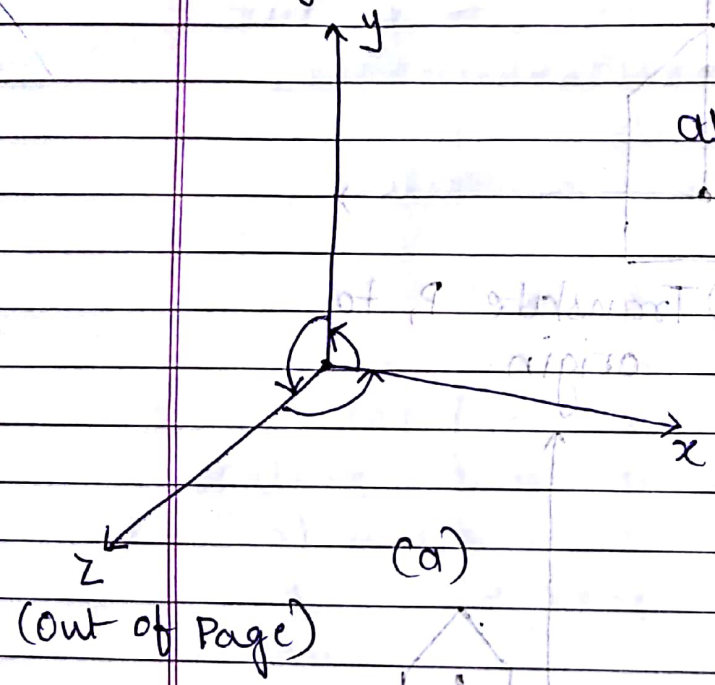 y
a
x
z
(a)
(Out of Page)